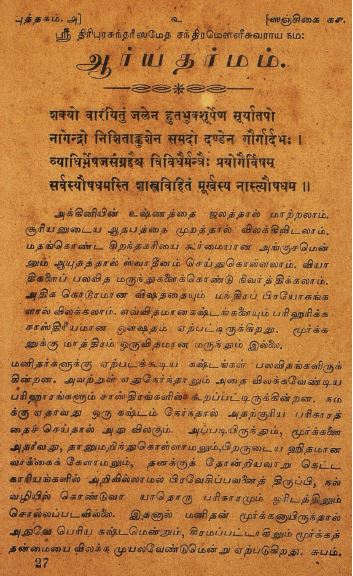 புத்தகம். அ] உ [ஸஞ்சிகை கஎ.
ஸ்ரீ திரிபுரசுந்தரீஸமேத சந்திரமௌளீசுவராய நம:
ஆர்யதர்மம்.
शक्यो वारयितुं जलेन हुतभुक्शूर्पेण सूर्यातपो
नागेन्द्रो निशिताङ्कुशेन समदो दण्डेन गौर्गार्दभः ।
व्याधिर्भेषजसंग्रहैश्च विविधैर्मन्त्रैः प्रयोगैर्विषम्
सर्वस्यौषधमस्ति शास्त्रविहितं मूर्खस्य नास्त्यौषधम् ॥
அக்கினியின் உஷ்ணத்தை ஜலத்தால் மாற்றலாம்.
சூரியனுடைய ஆதபத்தை முறத்தால் விலக்கிவிடலாம்.
மதங்கொண்ட கிறந்தகரியை கூர்மையான அங்குசமென்
னும் ஆயுதத்தால் ஸ்வாதீனம் செய்துகொள்ளலாம். வியா
திகளைப் பலவித மருந்துகளைக்கொண்டு நிவர்த்திக்கலாம்.
அதிக கொடூரமான விஷத்தையும் மந்திரப் பிரயோகங்க
ளால் விலக்கலாம். எவ்விதமானகஷ்டங்களையும் பரிஹரிக்க
சாஸ்திரீயமான ஒளஷதம் ஏற்பட்டிருக்கிறது. மூர்க்க
னுக்கு மாத்திரம் ஒருவிதமான மருந்தும் இல்லை.
மனிதர்களுக்கு ஏற்படக்கூடிய கஷ்டங்கள் பலவிதங்களிருக்
கின்றன. அவற்றுள் எதுநேர்ந்தாலும் அதை விலக்கவேண்டிய
பரிஹாரங்களும் சாஸ்திரங்களில் கூறப்பட்டிருக்கின்றன. நம
க்கு ஏதாவது ஒரு கஷ்டம் நேர்ந்தால் அதற்குரிய பரிகாரத்
தைச் செய்தால் அது விலகும். அப்படியிருந்தும், மூர்க்கனை
அதாவது, தானுமறிந்துகொள்ளாமலும்,பிறருடைய ஹிதமான
வாக்கைக் கேளாமலும், தனக்குத் தோன்றியவாறு கெட்ட
காரியங்களில் அறிவில்லாமல் பிரவேசிப்பவனைத் திருப்பி, நல்
வழியில் கொண்டுவர யாதொரு பரிகாரமும் ஓரிடத்திலும்
சொல்லப்படவில்லை. இதனால் மனிதன் மூர்க்கனாயிருந்தால்
அதுவே பெரிய கஷ்டமென்றும், சிரமப்பட்டாகிலும் மூர்க்கத்
தன்மையை விலக்க முயலவேண்டுமென்று ஏற்படுகிறது. சுபம்.
27